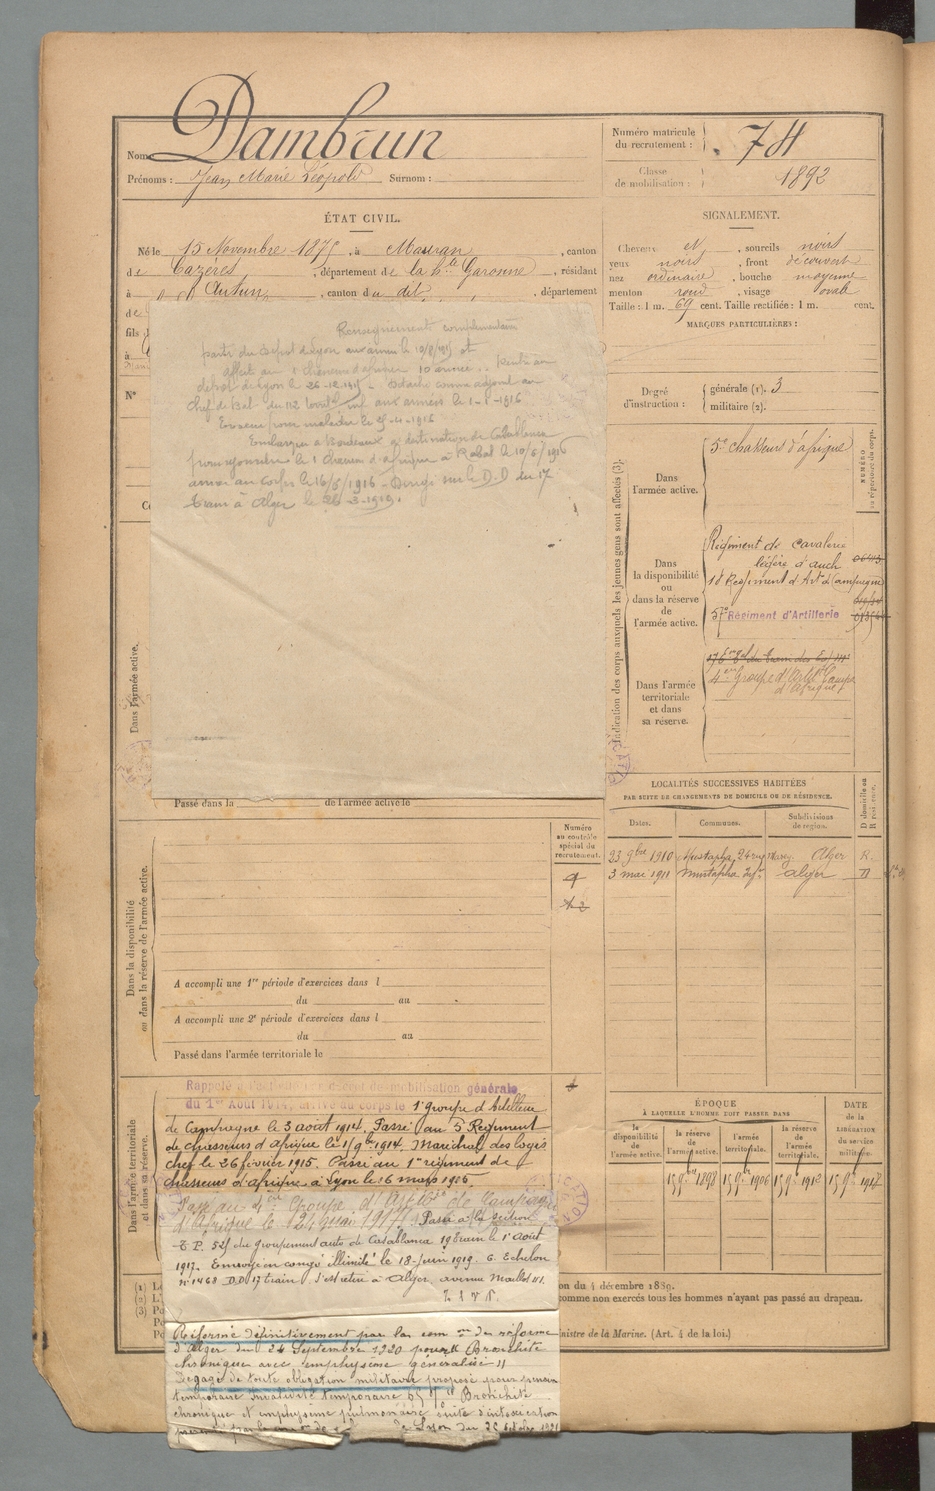 Nom Dambrun
Prénoms : Jean Marie Léopold Surnom :
Numéro matricule
du recrutement :
Classe
de mobilisation : 1892
ÉTAT CIVIL.
Né le 15 Novembre 187 , à Mauran , canton
de Cazères , département de la hte Garonne , résidant
à Autun , canton du dit , département
de
fils
à
N°
SIGNALEMENT.
Cheveux N , sourcils noirs
yeux noirs , front découvert
nez ordinaire , bouche moyenne
menton rond , visage ovale
Taille : 1 m. 69 cent. Taille rectifiée : 1 m. cent.
MARQUES PARTICULIÈRES :
Degré
d'instruction :
générale (1). 3
militaire (2).
Renseignements complémentaires
parti du Depot de Lyon aux armées le 10/8/1915 et
affecté au 1 chasseurs d'afrique 10 armée. Rentré au
dépot de Lyon le 26-12-1915 - Détaché comme adjoint au
chef de Bat. du 112 territ. inf aux armées le 1-1-1916
Evacué pour maladie le
Embarqué à Bordeaux à destination de Casablanca
pour rejoindre le 1 chasseurs d'afrique à Rabat le 10/5/1916
arrivé au corps le 16/5/1916 - Dirigé sur le D.D du 17
train à Alger le 26-3-1919.
Indication des corps auxquels les jeunes gens sont affectés (3).
NUMÉRO
au répertoire du corps.
Dans
l'armée active.
5e chasseurs d'afrique
Dans
la disponibilité
ou
dans la réserve
de
l'armée active.
Régiment de cavalerie
légère à auch
18 Régiment d'Art. de Campagne
57e Régiment d'Artillerie
Dans l'armée
territoriale
et dans
sa réserve.
4eme Groupe d'Artie Campe
d'Afrique
Dans l'armée active.
Passé dans la de l'armée active le
LOCALITÉS SUCCESSIVES HABITÉES
PAR SUITE DE CHANGEMENTS DE DOMICILE OU DE RÉSIDENCE.
Dates. Communes. Subdivisions
de région. D domicile ou
R résidence.
23 9bre 1910 Mustapha, 24 rue Alger R.
3 mai 1911 Mustapha Infr. Alger D
Dans la disponibilité
ou dans la réserve de l'armée active.
Numéro
au contrôle
spécial du
recrutement.
4
A accompli une 1re période d'exercices dans l
du au
A accompli une 2e période d'exercices dans l
du au
Passé dans l'armée territoriale le
Dans l'armée territoriale
et dans sa réserve.
Rappelé à l'activité par décret de mobilisation générale
du 1er Août 1914, arrivé au corps le 1er groupe d'Artillerie
de Campagne le 3 août 1914. Passé au 5 Régiment
de chasseurs d'afrique le 1/9bre 1914. Maréchal des logis
chef le 26 février 1915. Passé au 1er régiment de
chasseurs d'afrique à Lyon le 16 mars 1915
Passé au 4eme Groupe d'Artie de Campagne
d'Afrique le 24 mai 1917. Passé à la section
T.P. 525 du groupement auto de Casablanca 19 train le 1er août
1917. Envoyé en congé illimité le 18 juin 1919. 6. Echelon
n° 1468 D.D 17 train, s'est retiré à Alger, avenue Maillot 41.
ÉPOQUE
À LAQUELLE L'HOMME DOIT PASSER DANS
DATE
de la
LIBÉRATION
du service
militaire.
la
disponibilité
de
l'armée
active.
la réserve
de
l'armée active.
l'armée
territoriale.
la réserve
de
l'armée
territoriale.
15 9bre 1898 15 9bre 1906 15 9bre 1912 15 9bre 1917
Réformé définitivement par la com on de réforme
d'Alger du 24 Septembre 1920 pour Bronchite
chronique avec emphysème généralisé
Dégagé de toute obligation militaire proposé pour pension
temporaire Invalidité temporaire 65 % Bronchite
chronique et emphysème pulmonaire suite d'intoxication
de Lyon du 26 octobre 1921
on du 4 décembre 1889.
comme non exercés tous les hommes n'ayant pas passé au drapeau.
inistre de la Marine. (Art. 4 de la loi.)